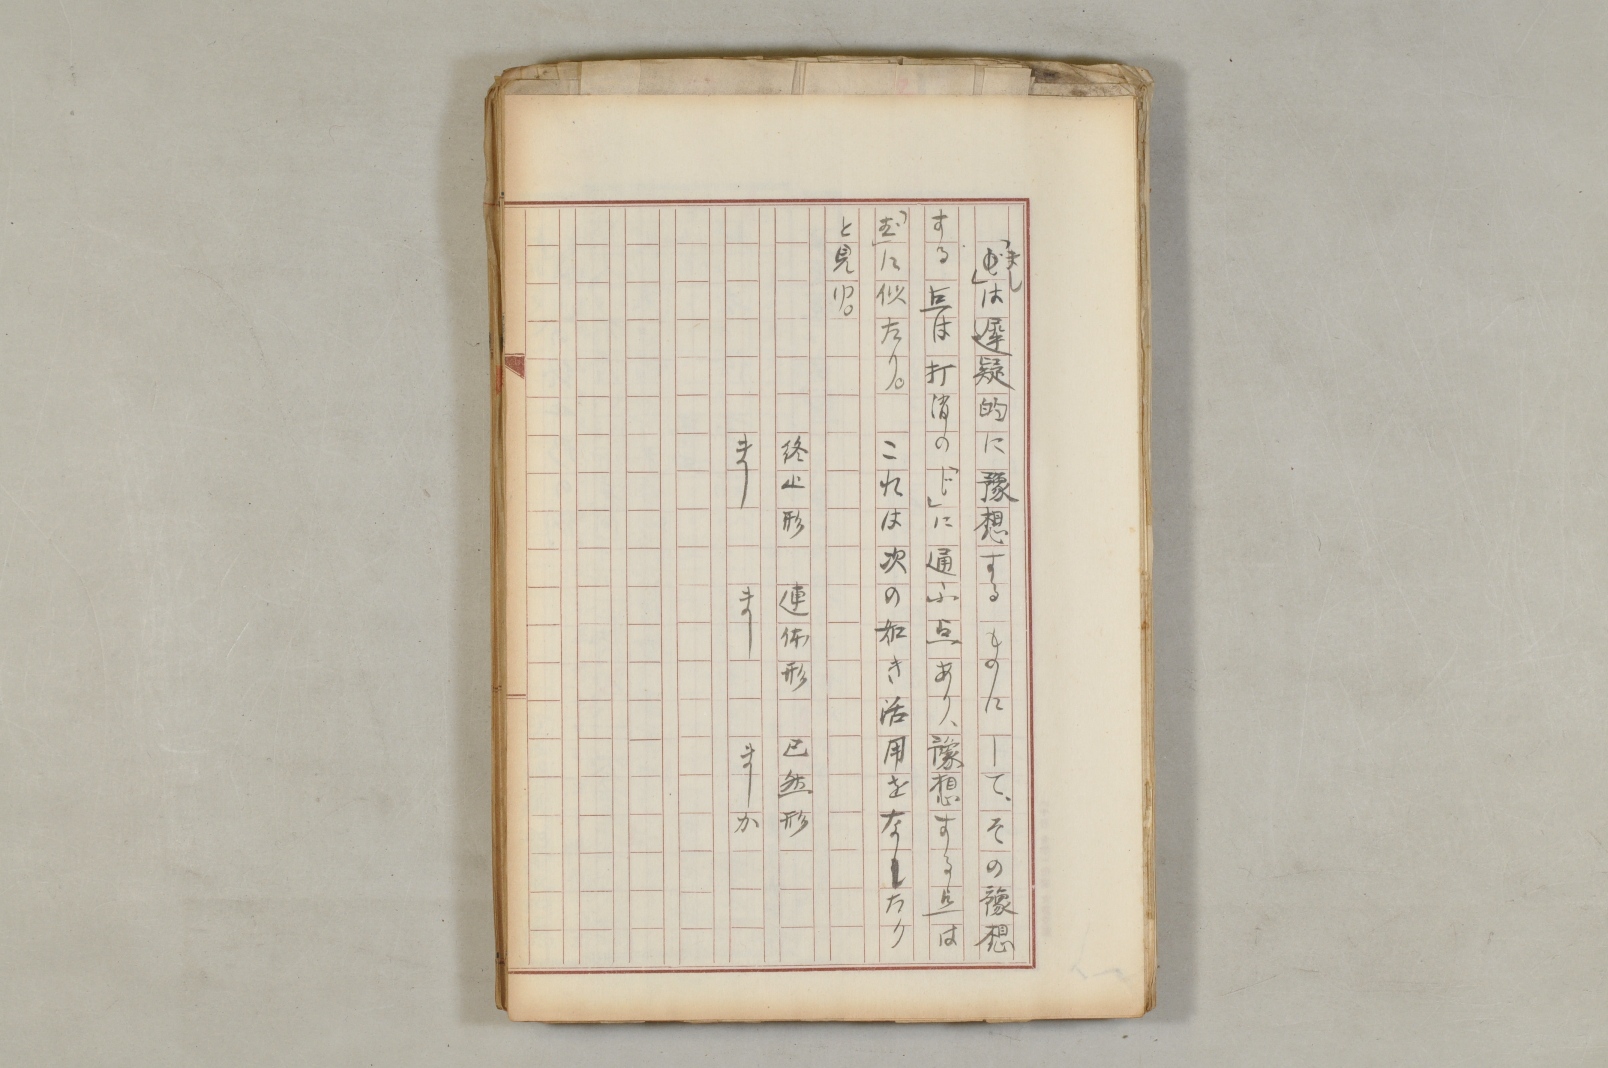 「まし」は遅疑的に豫想するものにして、その豫想
する点は打消の「じ」に通ふ点あり、豫想する点は
「む」に似たり。　これは次の如き活用をなしたり
と見ゆ。
終止形　連体形　已然形
まし　まし　ましか